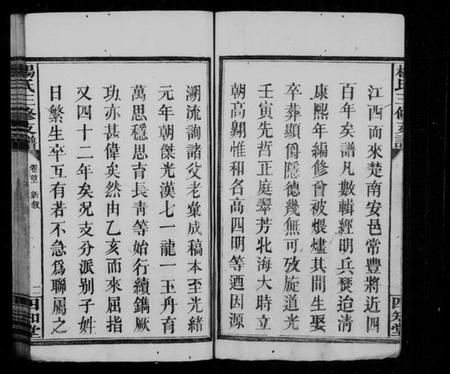 江西而來楚南安邑常豐將近四
百年矣譜凡數輯經明兵燹迨清
康熙年編修曾被燬爐其間生娶
卒葬顯爵隱德幾無可攷旋道光
壬寅先哲正庭翠芳北海大時立
朝高翔惟和名高四明等迺因源
溯流詢諸父老彙成稿本至光緒
元年朝傑光漢七一龍一玉丹育
萬思穩思育長靑等始行續鐫厥
功亦甚偉矣然由乙亥而來屈指
又四十二年矣况支分派別子姓
日繁生卒互有若不急爲聯屬之
楊氏三修支譜
卷首 新敘
二
四知堂
楊氏三修支譜
四知堂